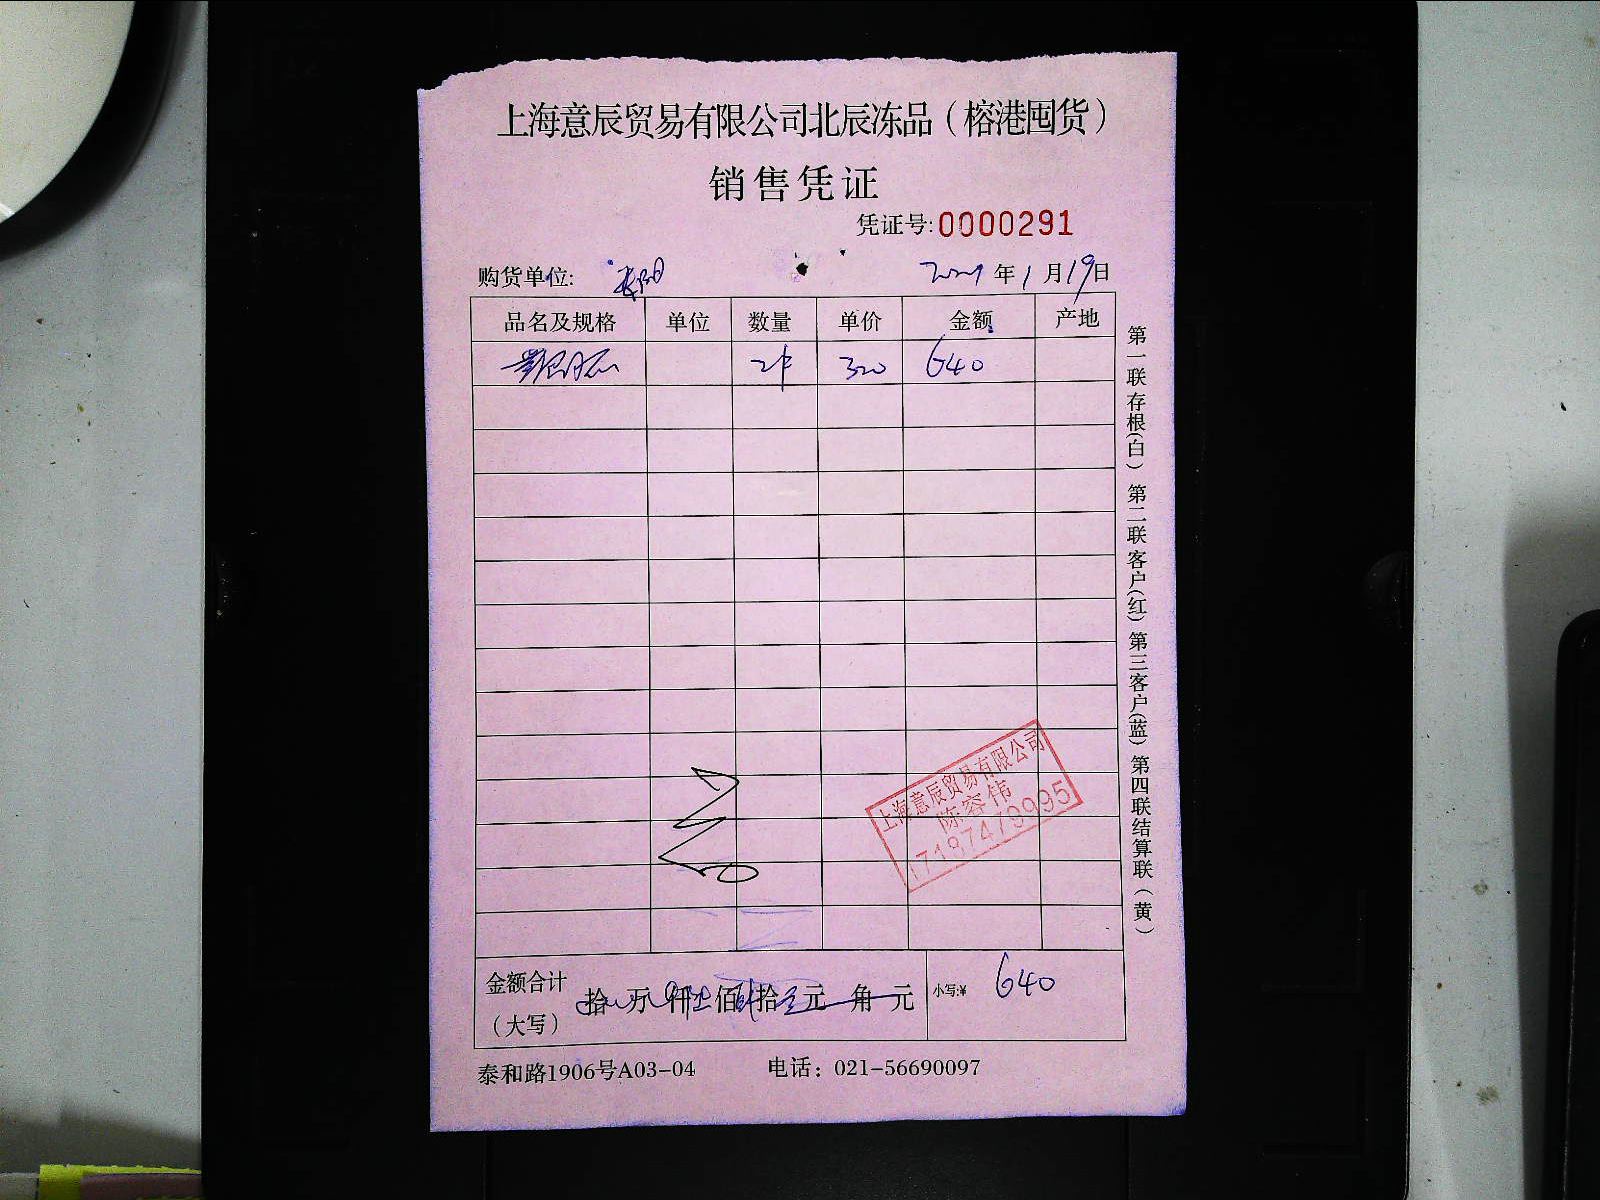 上海意辰贸易有限公司北辰冻品（榕港囤货）
销售凭证
凭证号:0000291
购货单位:
2021年1月19日
品名及规格 单位 数量 单价 金额 产地
2件 320 640
上海意辰贸易有限公司
陈容伟
17187479995
金额合计（大写） 拾 万 仟 佰 拾 元 角 元 小写:¥ 640
泰和路1906号A03-04 电话：021-56690097
第一联存根(白) 第二联客户(红) 第三客户(蓝) 第四联结算联（黄）